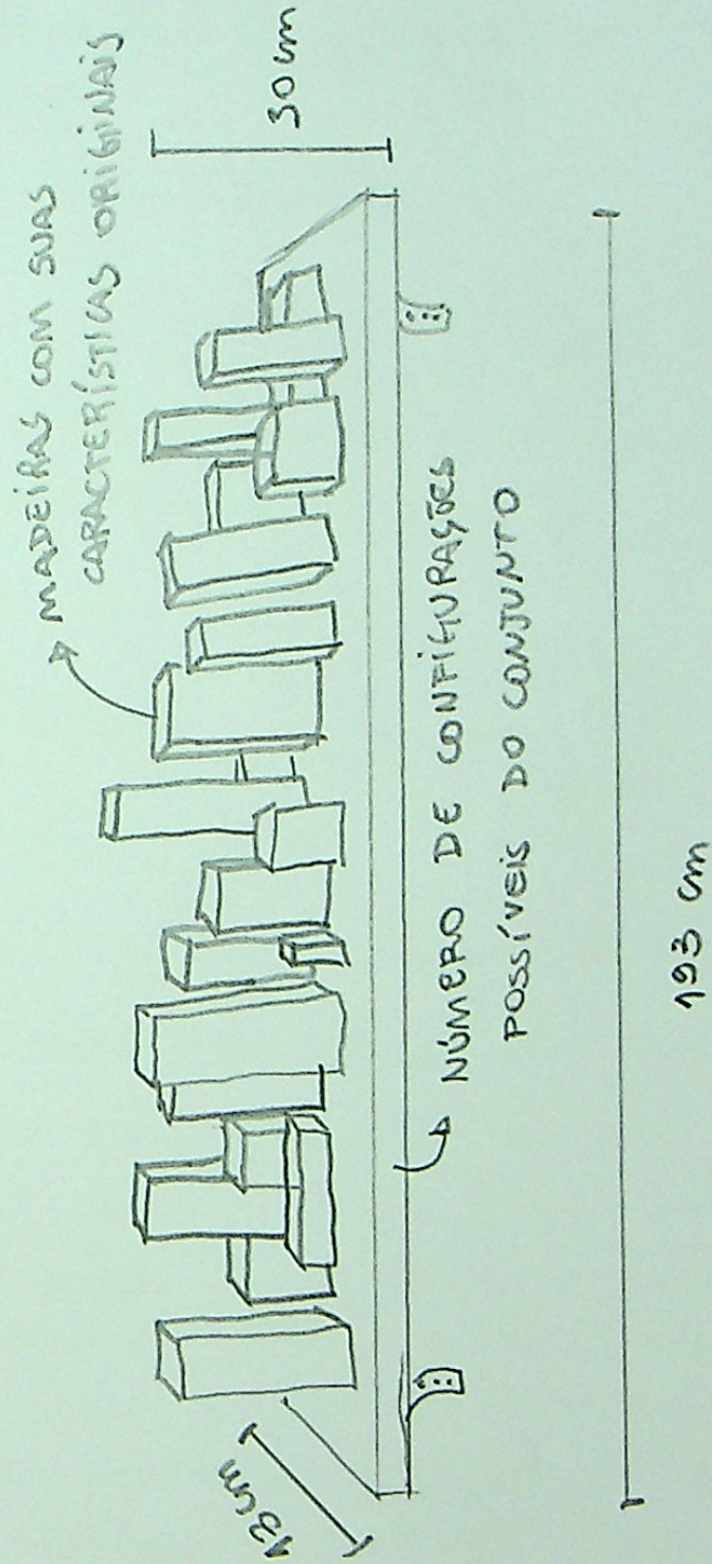 MADEIRAS COM SUAS
CARACTERÍSTICAS ORIGINAIS
30 cm
13 cm
NÚMERO DE CONFIGURAÇÕES
POSSÍVEIS DO CONJUNTO
193 cm